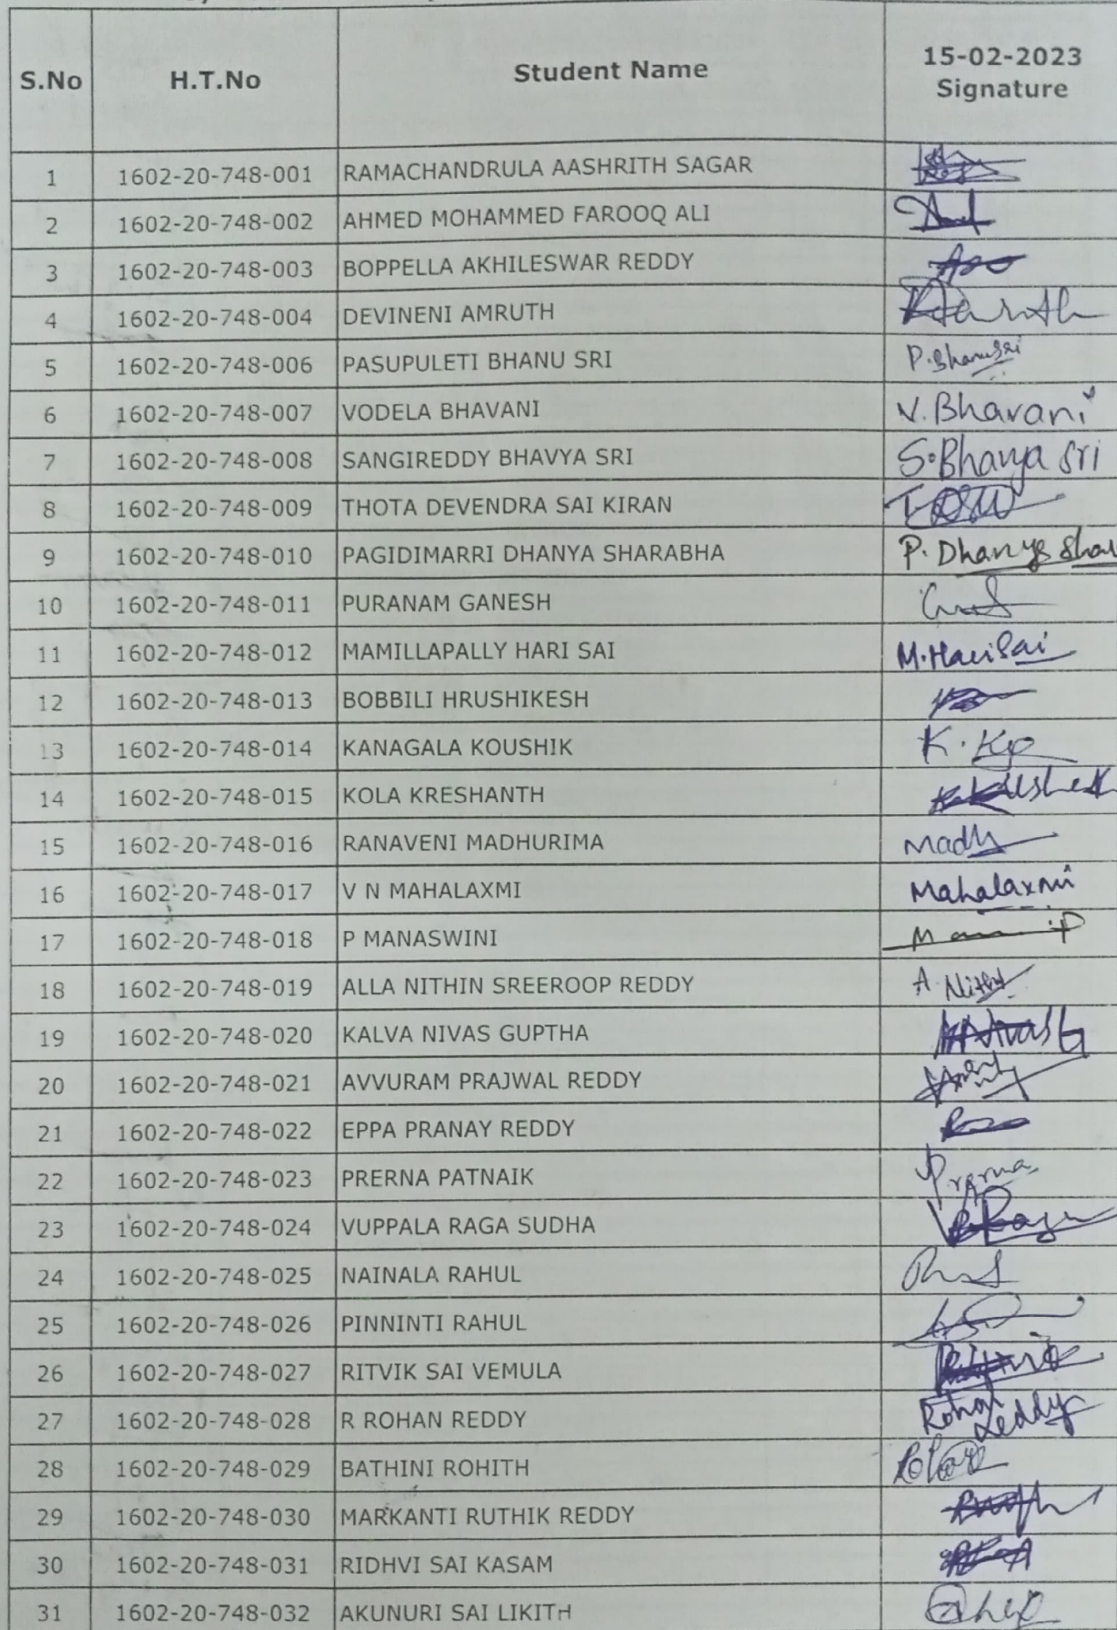 S.No H.T.No Student Name 15-02-2023 Signature
1 1602-20-748-001 RAMACHANDRULA AASHRITH SAGAR
2 1602-20-748-002 AHMED MOHAMMED FAROOQ ALI
3 1602-20-748-003 BOPPELLA AKHILESWAR REDDY
4 1602-20-748-004 DEVINENI AMRUTH
5 1602-20-748-006 PASUPULETI BHANU SRI P.Bhanusri
6 1602-20-748-007 VODELA BHAVANI V.Bhavani
7 1602-20-748-008 SANGIREDDY BHAVYA SRI S.Bhavya Sri
8 1602-20-748-009 THOTA DEVENDRA SAI KIRAN
9 1602-20-748-010 PAGIDIMARRI DHANYA SHARABHA P. Dhanya Shar
10 1602-20-748-011 PURANAM GANESH
11 1602-20-748-012 MAMILLAPALLY HARI SAI M.Hari Sai
12 1602-20-748-013 BOBBILI HRUSHIKESH
13 1602-20-748-014 KANAGALA KOUSHIK
14 1602-20-748-015 KOLA KRESHANTH
15 1602-20-748-016 RANAVENI MADHURIMA Madhu
16 1602-20-748-017 V N MAHALAXMI Mahalaxmi
17 1602-20-748-018 P MANASWINI
18 1602-20-748-019 ALLA NITHIN SREEROOP REDDY
19 1602-20-748-020 KALVA NIVAS GUPTHA
20 1602-20-748-021 AVVURAM PRAJWAL REDDY
21 1602-20-748-022 EPPA PRANAY REDDY
22 1602-20-748-023 PRERNA PATNAIK Prerna
23 1602-20-748-024 VUPPALA RAGA SUDHA
24 1602-20-748-025 NAINALA RAHUL
25 1602-20-748-026 PINNINTI RAHUL
26 1602-20-748-027 RITVIK SAI VEMULA
27 1602-20-748-028 R ROHAN REDDY Rohan Reddy
28 1602-20-748-029 BATHINI ROHITH
29 1602-20-748-030 MARKANTI RUTHIK REDDY
30 1602-20-748-031 RIDHVI SAI KASAM
31 1602-20-748-032 AKUNURI SAI LIKITH